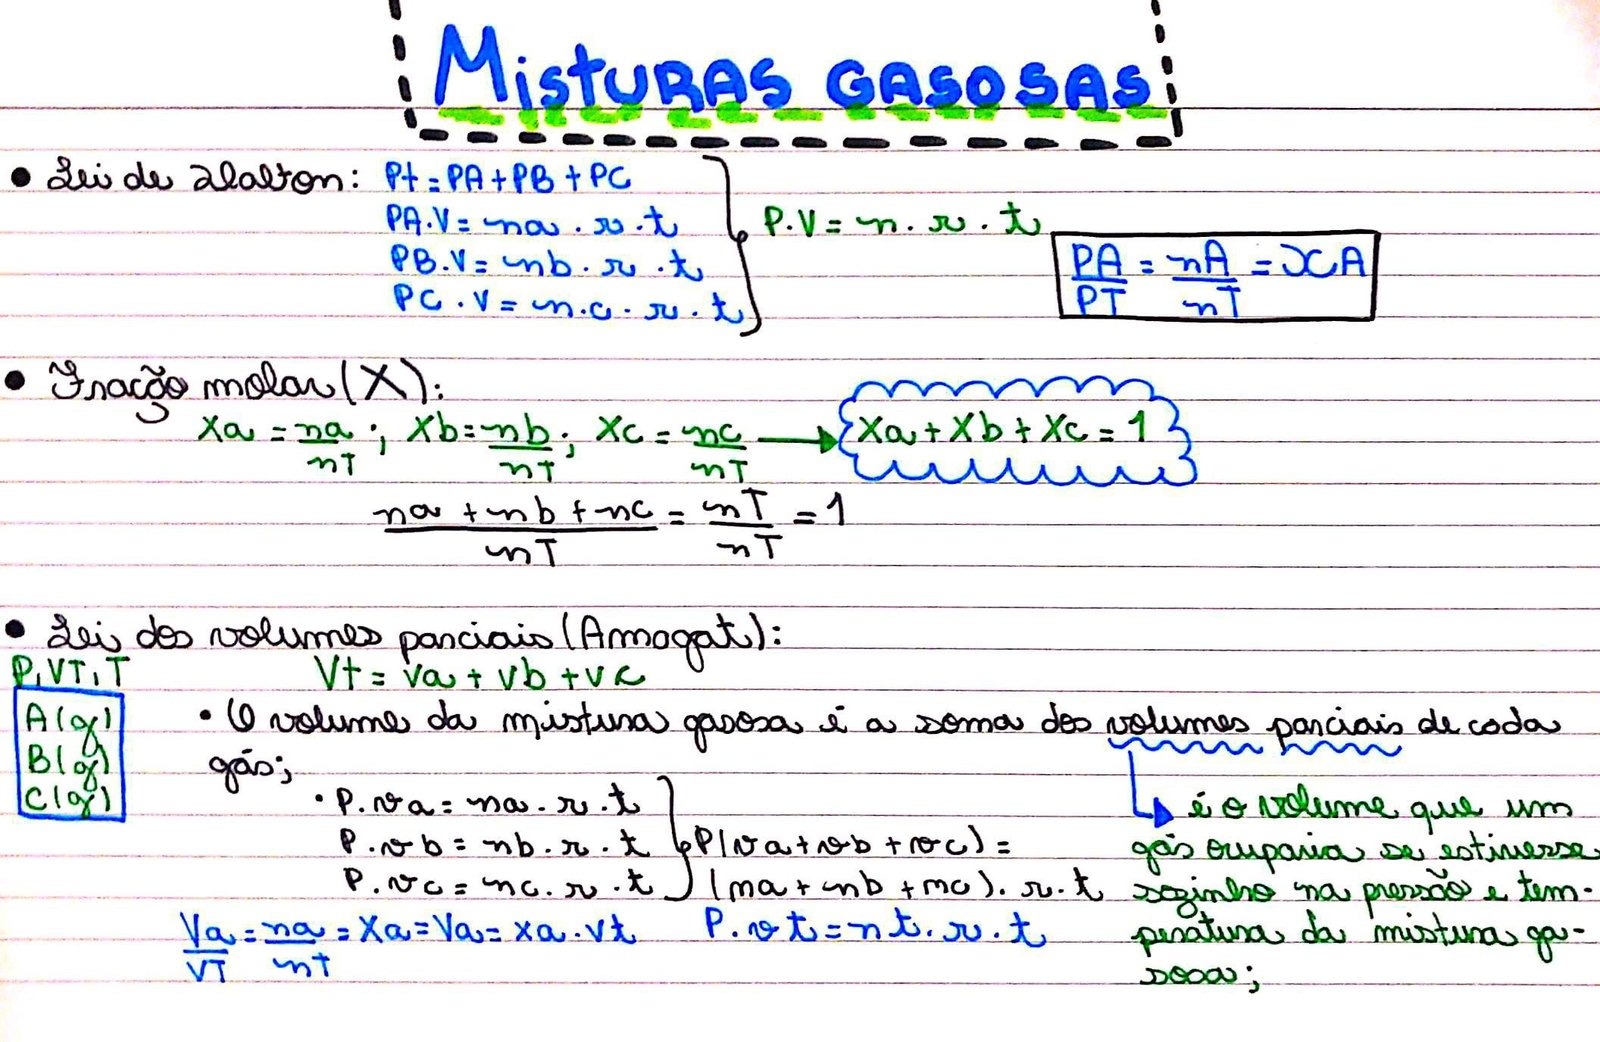 MISTURAS GASOSAS
• Lei de Dalton: Pt = PA + PB + PC
PA.V = na . r . t
PB.V = nb . r . t
PC . V = n.c . r . t
P.V = n . r . t
PA/PT = nA/nT = XA
• Fração molar (X):
Xa = na/nT ; Xb = nb/nT ; Xc = nc/nT → Xa + Xb + Xc = 1
na + nb + nc/nT = nT/nT = 1
• Lei dos volumes parciais (Amagat):
P, VT, T
Vt = va + vb + vc
A(g)
B(g)
C(g)
• O volume da mistura gasosa é a soma dos volumes parciais de cada
gás;
• P.va = na . r . t
P.vb = nb . r . t
P.vc = nc . r . t
P(va + vb + vc) =
(na + nb + nc) . r . t
Va/VT = na/nT = Xa = Va = xa . vt
P.vt = nt . r . t
é o volume que um
gás ocuparia se estivesse
sozinho na pressão e tem-
peratura da mistura ga-
sosa;